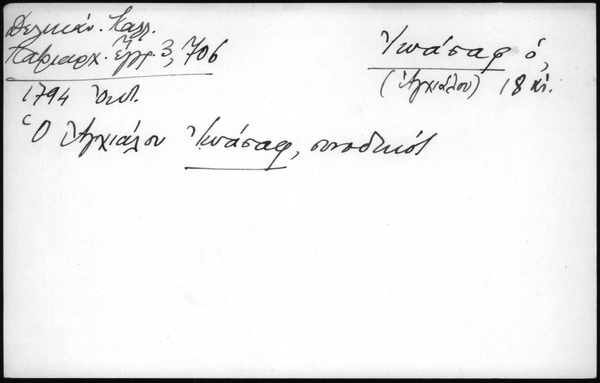 Δελικάν. Καλλ.
Πατριαρχ. ἔγγρ. 3, 706
Ἰωάσαφ ὁ,
(Ἀγχιάλου) 18 αἰ.
1794 Ὀκτ.
Ὁ Ἀγχιάλου Ἰωάσαφ, συνοδικός